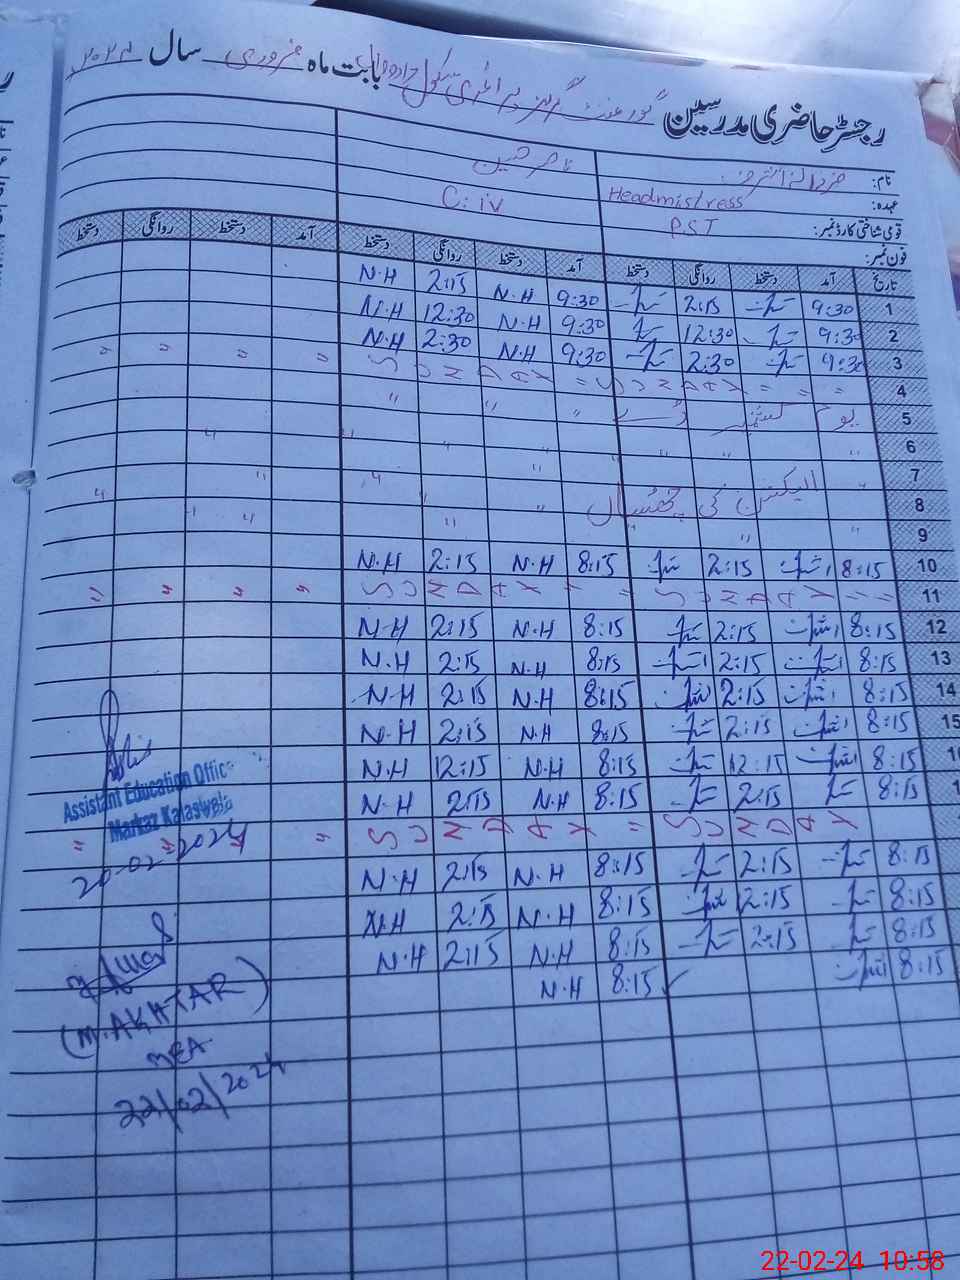 رجسٹر حاضری مدرسین گورنمنٹ گرلز پرائمری سکول بابت ماہ فروری سال ۲۰۲۴
نام: ناصر حسین
عہدہ: Headmistress C:iv
قومی شناختی کارڈ نمبر: PST
فون نمبر:
تاریخ آمد دستخط روانگی دستخط آمد دستخط روانگی دستخط آمد دستخط روانگی دستخط
1 9:30 2:15 9:30 N.H 2:15 N.H
2 9:30 12:30 9:30 N.H 12:30 N.H
3 9:30 2:30 9:30 N.H 2:30 N.H
4 " " SUNDAY = SUNDAY " " " "
5 یوم کشمیر ڈے " " "
6 " " " " " " "
7 " " " "
8 الیکشن کی چھٹیاں " " " "
9 " " " " " "
10 8:15 2:15 8:15 N.H 2:15 N.H
11 " " SUNDAY " " SUNDAY " " " "
12 8:15 2:15 8:15 N.H 2:15 N.H
13 8:15 2:15 8:15 N.H 2:15 N.H
14 8:15 2:15 8:15 N.H 2:15 N.H
15 8:15 2:15 8:15 N.H 2:15 N.H
8:15 12:15 8:15 N.H 12:15 N.H
8:15 2:15 8:15 N.H 2:15 N.H
SUNDAY = SUNDAY " " " "
8:15 2:15 8:15 N.H 2:15 N.H
8:15 2:15 8:15 N.H 2:15 N.H
8:15 2:15 8:15 N.H 2:15 N.H
8:15 8:15 N.H
Assistant Education Office
Markaz Kalaswala
20-02-2024
(M.AKHTAR)
MEA
22/02/2024
22-02-24 10:58